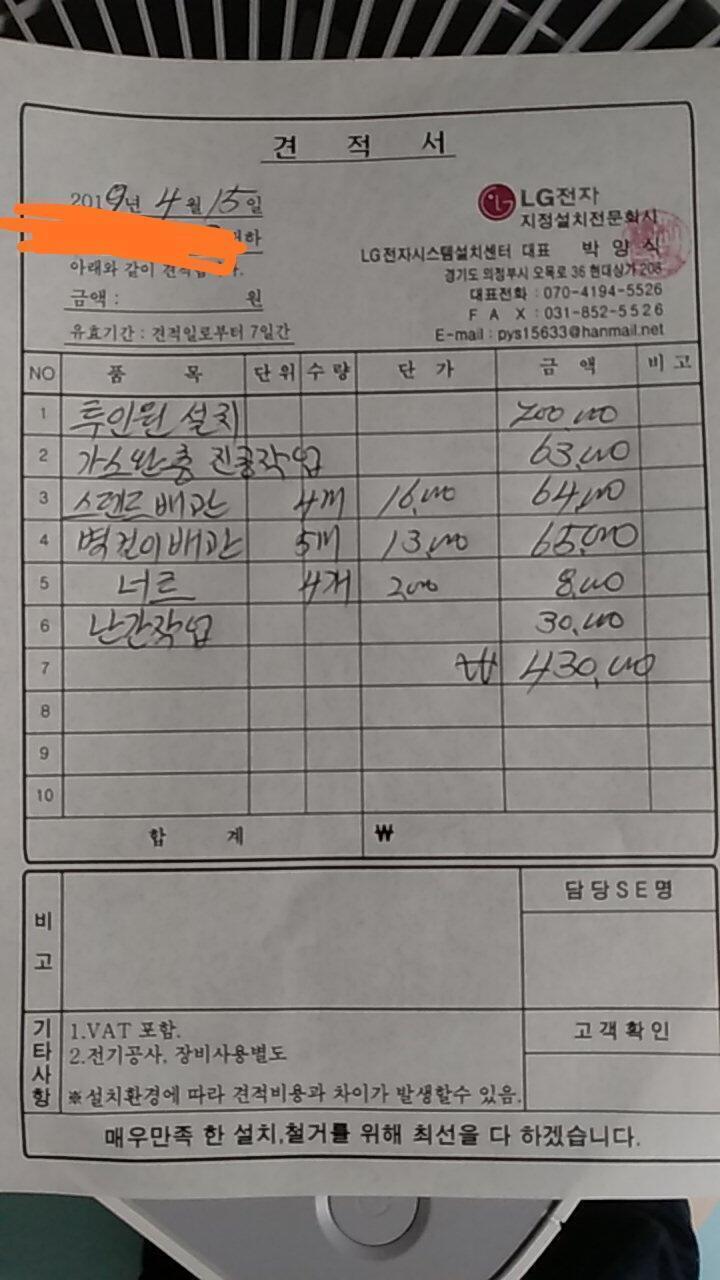 견 적 서
2019년 4월 15일
하
아래와 같이 견적
금액 : 원
유효기간 : 견적일로부터 7일간
LG전자
지정설치전문회사
LG전자시스템설치센터 대표 박 양 식
경기도 의정부시 오목로 36 현대상가 208
대표전화 : 070-4194-5526
F A X : 031-852-5526
E-mail : pys15633@hanmail.net
NO 품 목 단위 수량 단 가 금 액 비고
1 투인원 설치 200,000
2 가스완충 진공작업 63,000
3 스텐르배관 4M 16,000 64,000
4 벽걸이배관 5M 13,000 65,000
5 너트 4개 2,000 8,000
6 난간작업 30,000
7 ₩ 430,000
8
9
10
합 계 ₩
비고
담당SE명
고객확인
기타사항
1.VAT 포함.
2.전기공사, 장비사용별도
※설치환경에 따라 견적비용과 차이가 발생할수 있음.
매우만족 한 설치,철거를 위해 최선을 다 하겠습니다.